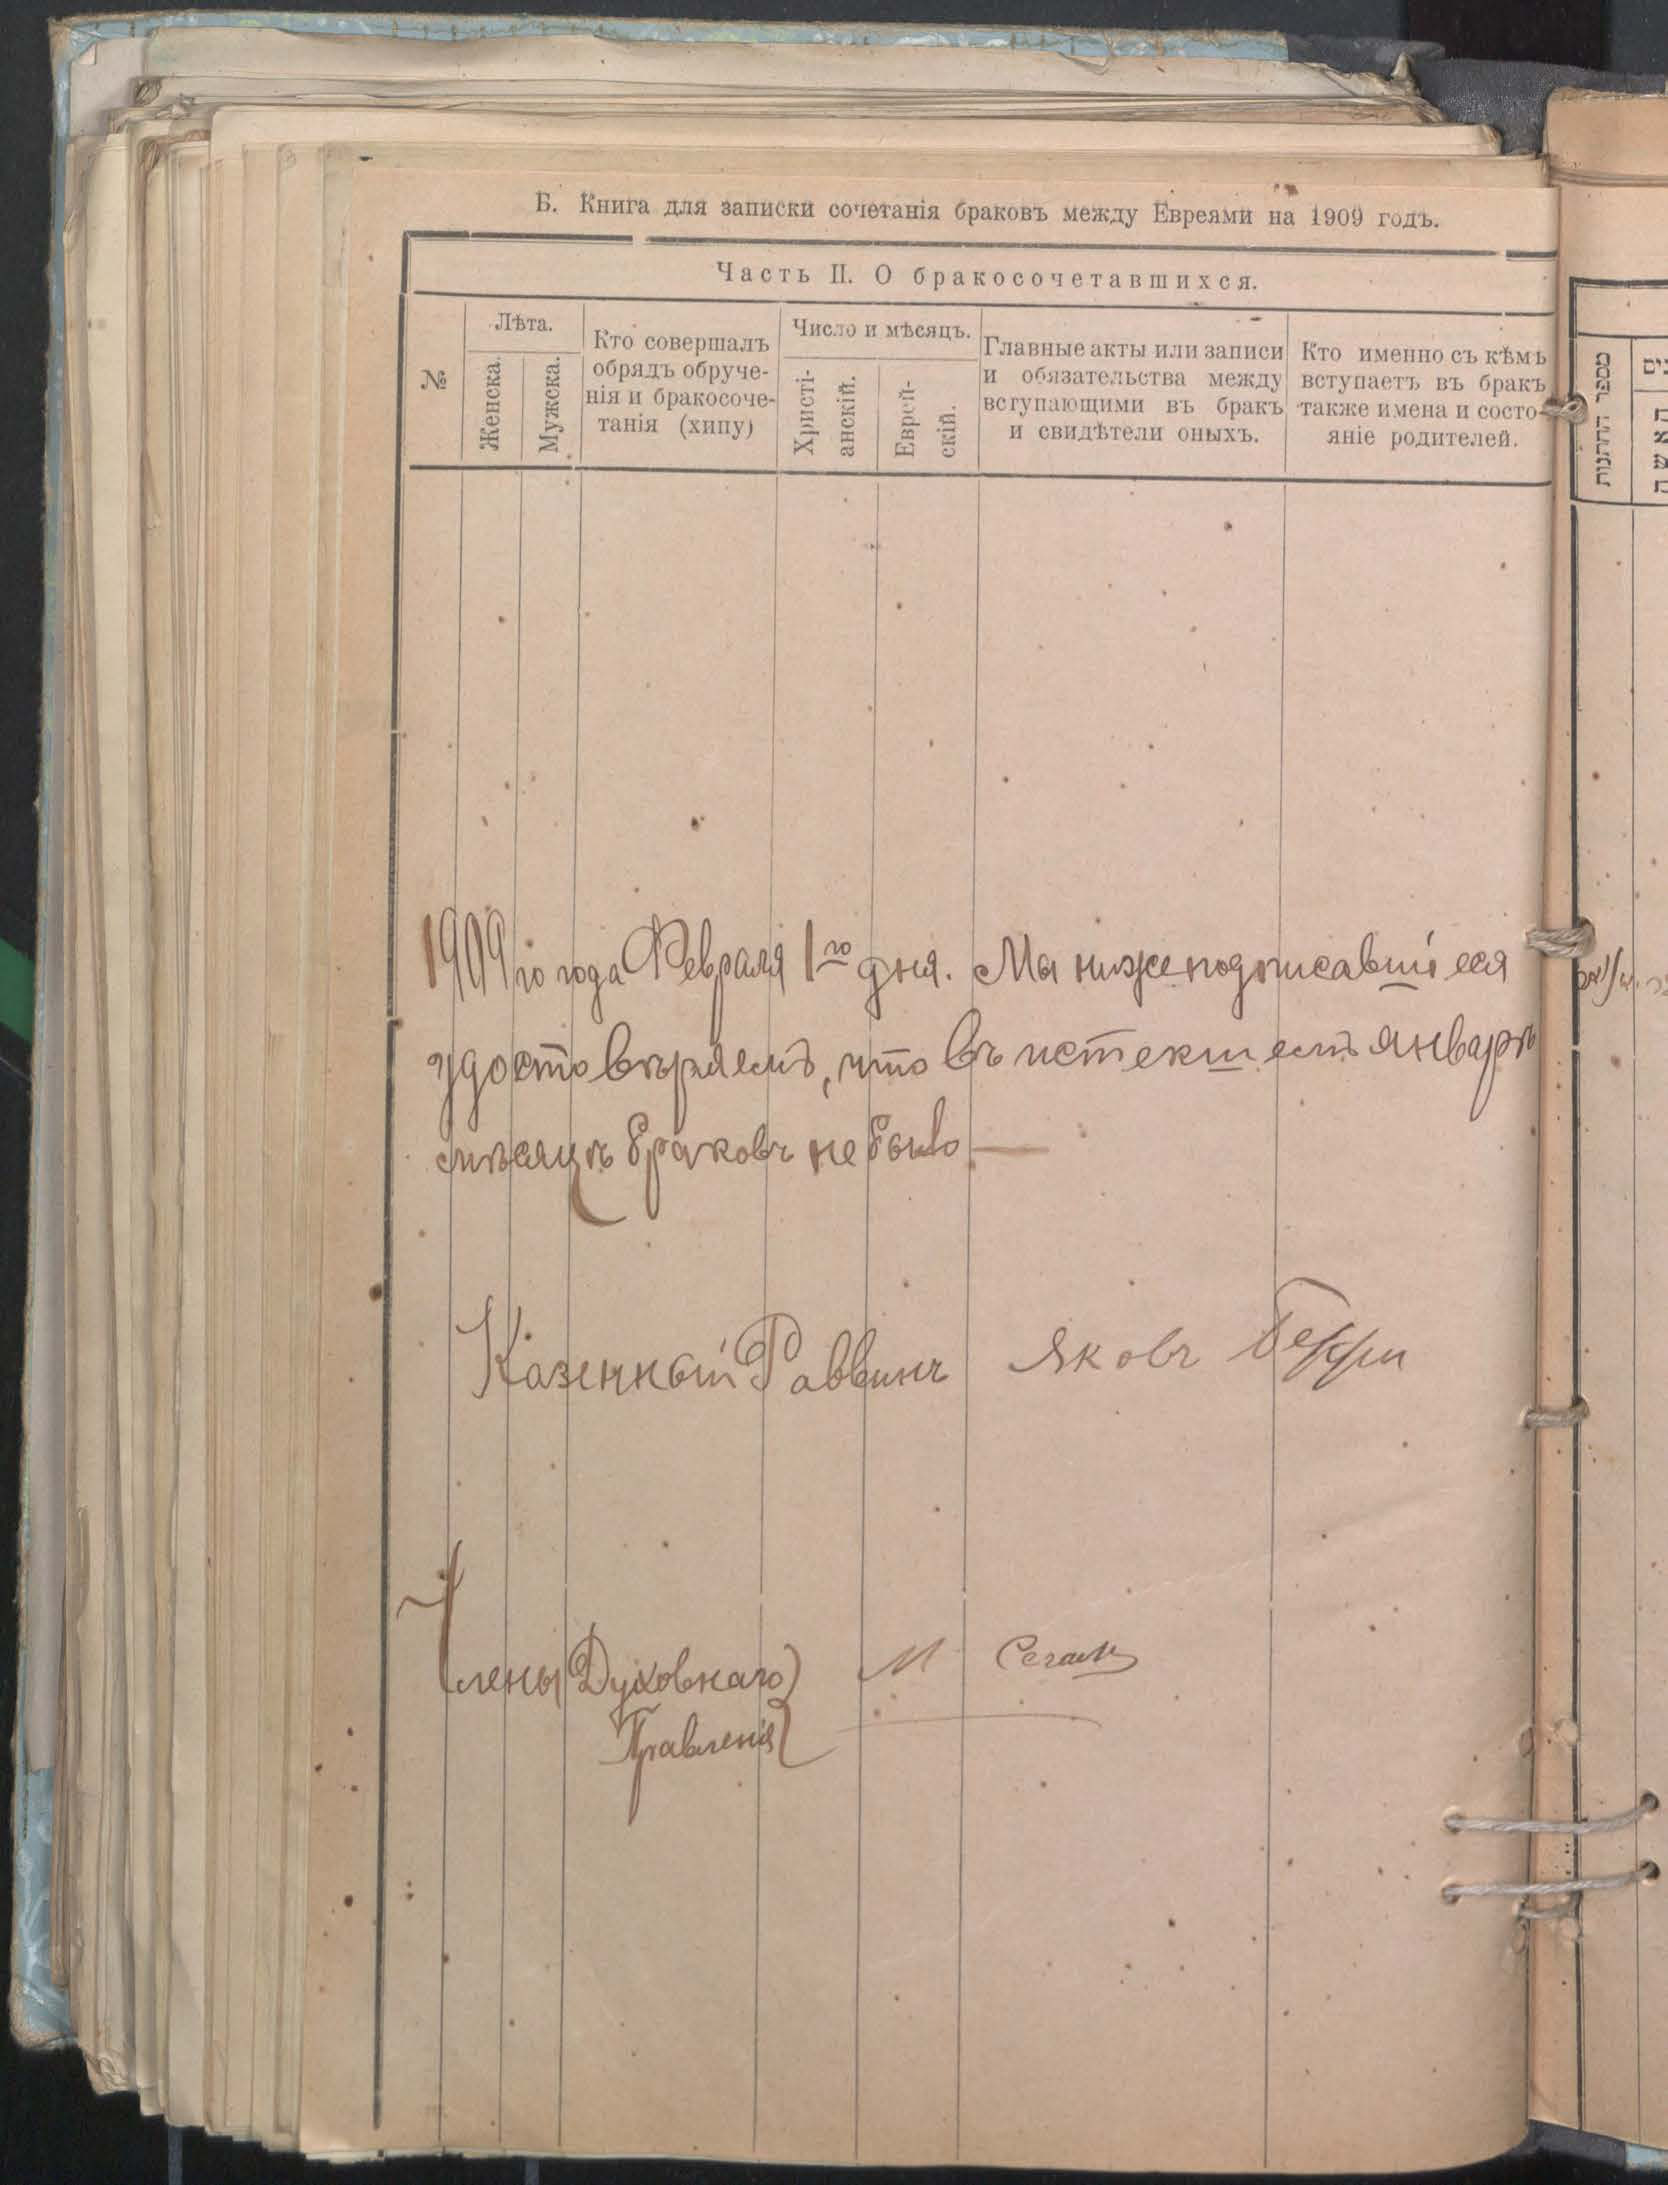 Б. Книга для записки сочетанія браковъ между Евреями на 1909 годъ.
Часть II. О бракосочетавшихся.
№
Лѣта.
Женска.
Мужска.
Кто совершалъ
обрядъ обруче-
нія и бракосоче-
танія (хипу)
Число и мѣсяцъ.
Христі-
анскій.
Еврей-
скій.
Главные акты или записи
и обязательства между
вступающими въ бракъ
и свидѣтели оныхъ.
Кто именно съ кѣмъ
вступаетъ въ бракъ
также имена и состо-
яніе родителей.
1909 го года Февраля 1го дня. Мы нижеподписавшіеся
удостовѣряемъ, что въ истекшемъ январѣ
мѣсяцѣ браковъ не было —
Казенный Раввинъ Яковъ
Члены Духовнаго М Сегаль
Правленія
מספר החתנות
האשה